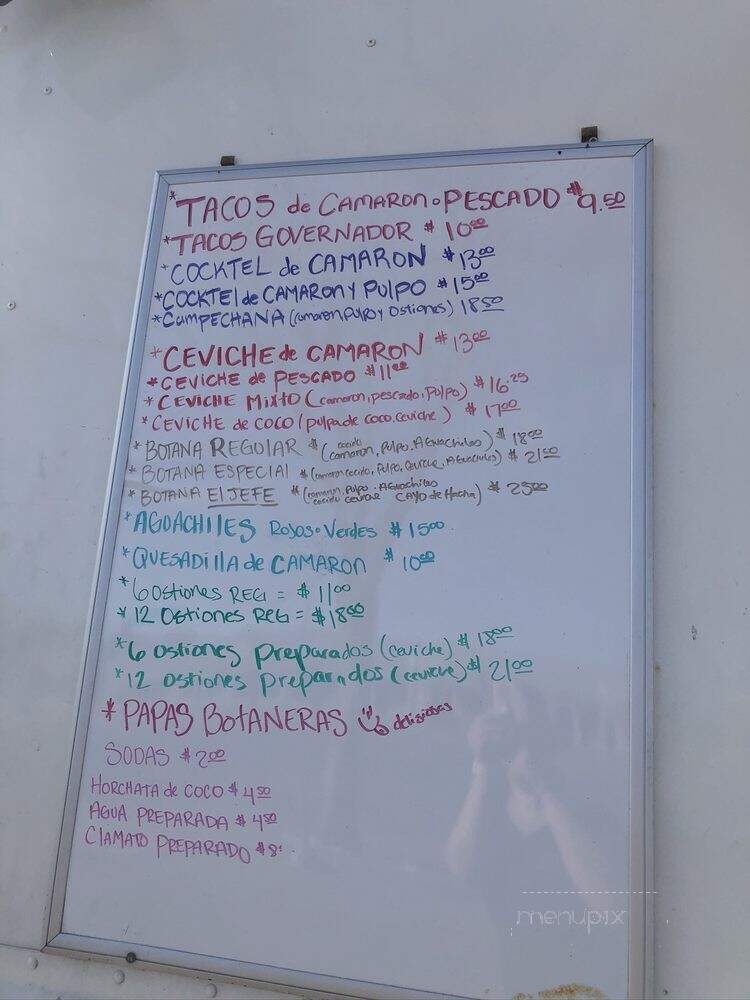 *TACOS de CAMARON o PESCADO $9.50
*TACOS GOVERNADOR $10.00
*COCKTEL de CAMARON $13.00
*COCKTEL de CAMARON Y PULPO $15.00
*CAMPECHANA (camaron, Pulpo y Ostiones) 18.50
*CEVICHE de CAMARON $13.00
*CEVICHE de PESCADO $11.00
*CEVICHE MIXTO (camaron, pescado, Pulpo) $16.25
*CEVICHE de COCO (pulpa de coco, ceviche) $17.00
*BOTANA REGULAR *(cocido camaron, Pulpo, Aguachiles) $18.00
*BOTANA ESPECIAL *(camaron cocido, Pulpo, Ceviche, Aguachiles) $21.00
*BOTANA El JEFE *(camaron, Pulpo, Aguachiles
cocido ceviche CAYO de Hacha) $25.00
*AGUACHILES ROJOS o Verdes $15.00
*QUESADILLA de CAMARON $10.00
*6 Ostiones REG = $11.00
*12 Ostiones REG = $18.00
*6 ostiones Preparados (ceviche) $18.00
*12 ostiones preparados (ceviche) $21.00
*PAPAS BOTANERAS deliciosas
SODAS $2.00
HORCHATA de COCO $4.50
AGUA PREPARADA $4.50
CLAMATO PREPARADO $8
menupix